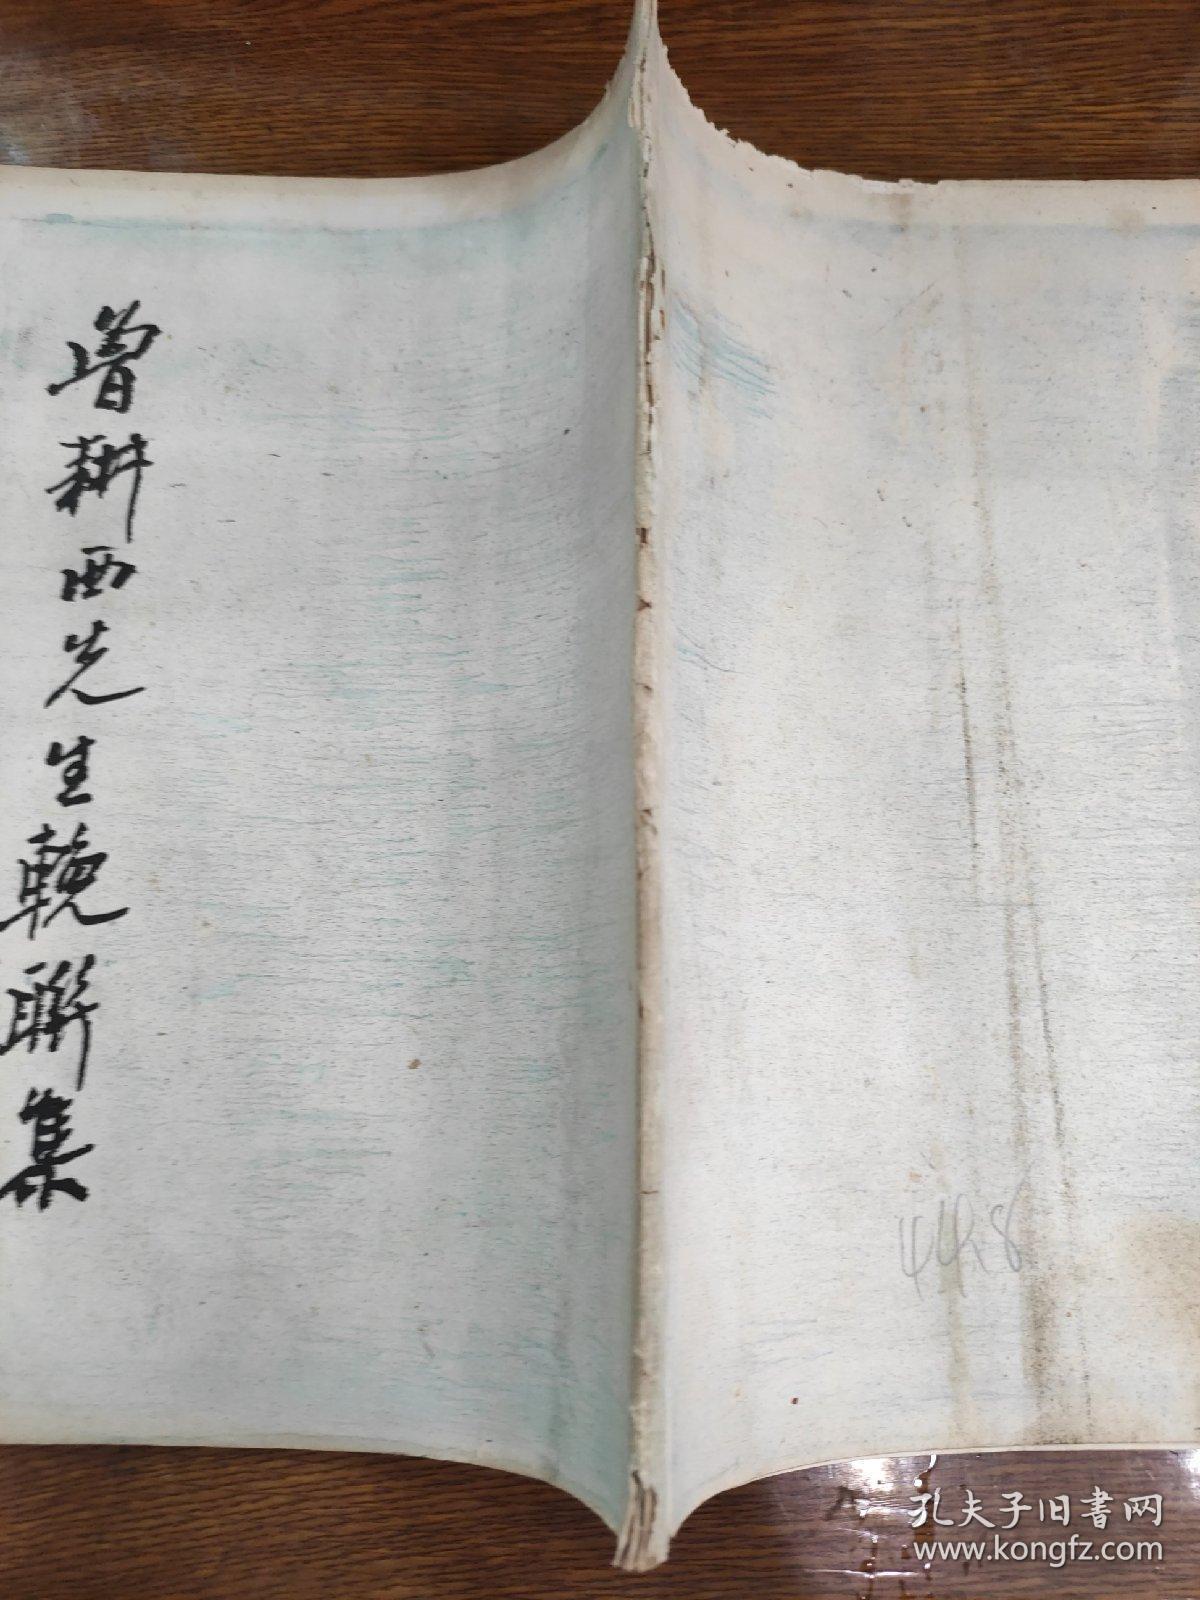 曾耕西先生輓聯集
44.8
孔夫子旧書网
www.kongfz.com